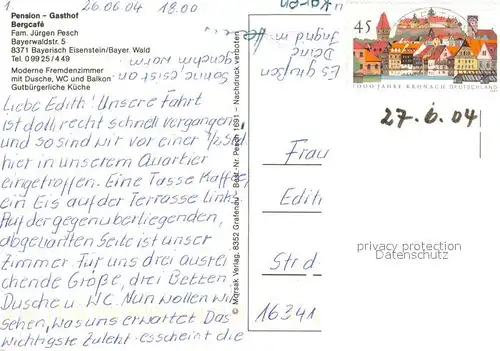 1. 26.06.04 18.00
Pension – Gasthof
Bergcafé
Fam. Jürgen Pesch
Bayerwaldstr. 5
8371 Bayerisch Eisenstein/Bayer. Wald
Tel. 09925/449
Moderne Fremdenzimmer
mit Dusche, WC und Balkon
Gutbürgerliche Küche
Liebe Edith! Unsere Fahrt
ist doll recht schnell vergangen,
und so sind wir vor einer 1/2 Std.
hier in unserem Quartier
eingetroffen. Eine Tasse Kaffee,
ein Eis auf der Terrasse links.
Auf der gegenüberliegenden,
abgewandten Seite ist unser
Zimmer. Für uns drei ausrei-
chende Größe, drei Betten,
Dusche u. WC. Nun wollen wir
sehen, was uns erwartet. Das
wichtigste zuletzt: es scheint die
Sonne
Es grüßen
Deine
Ingrid
© Morsak Verlag, 8352 Grafenau – Best.-Nr. Pesch 1691 – Nachdruck verboten
45
1000 JAHRE KRONACH DEUTSCHLAND
27.6.04
Frau
Edit
Str d
16341
privacy protection
Datenschutz